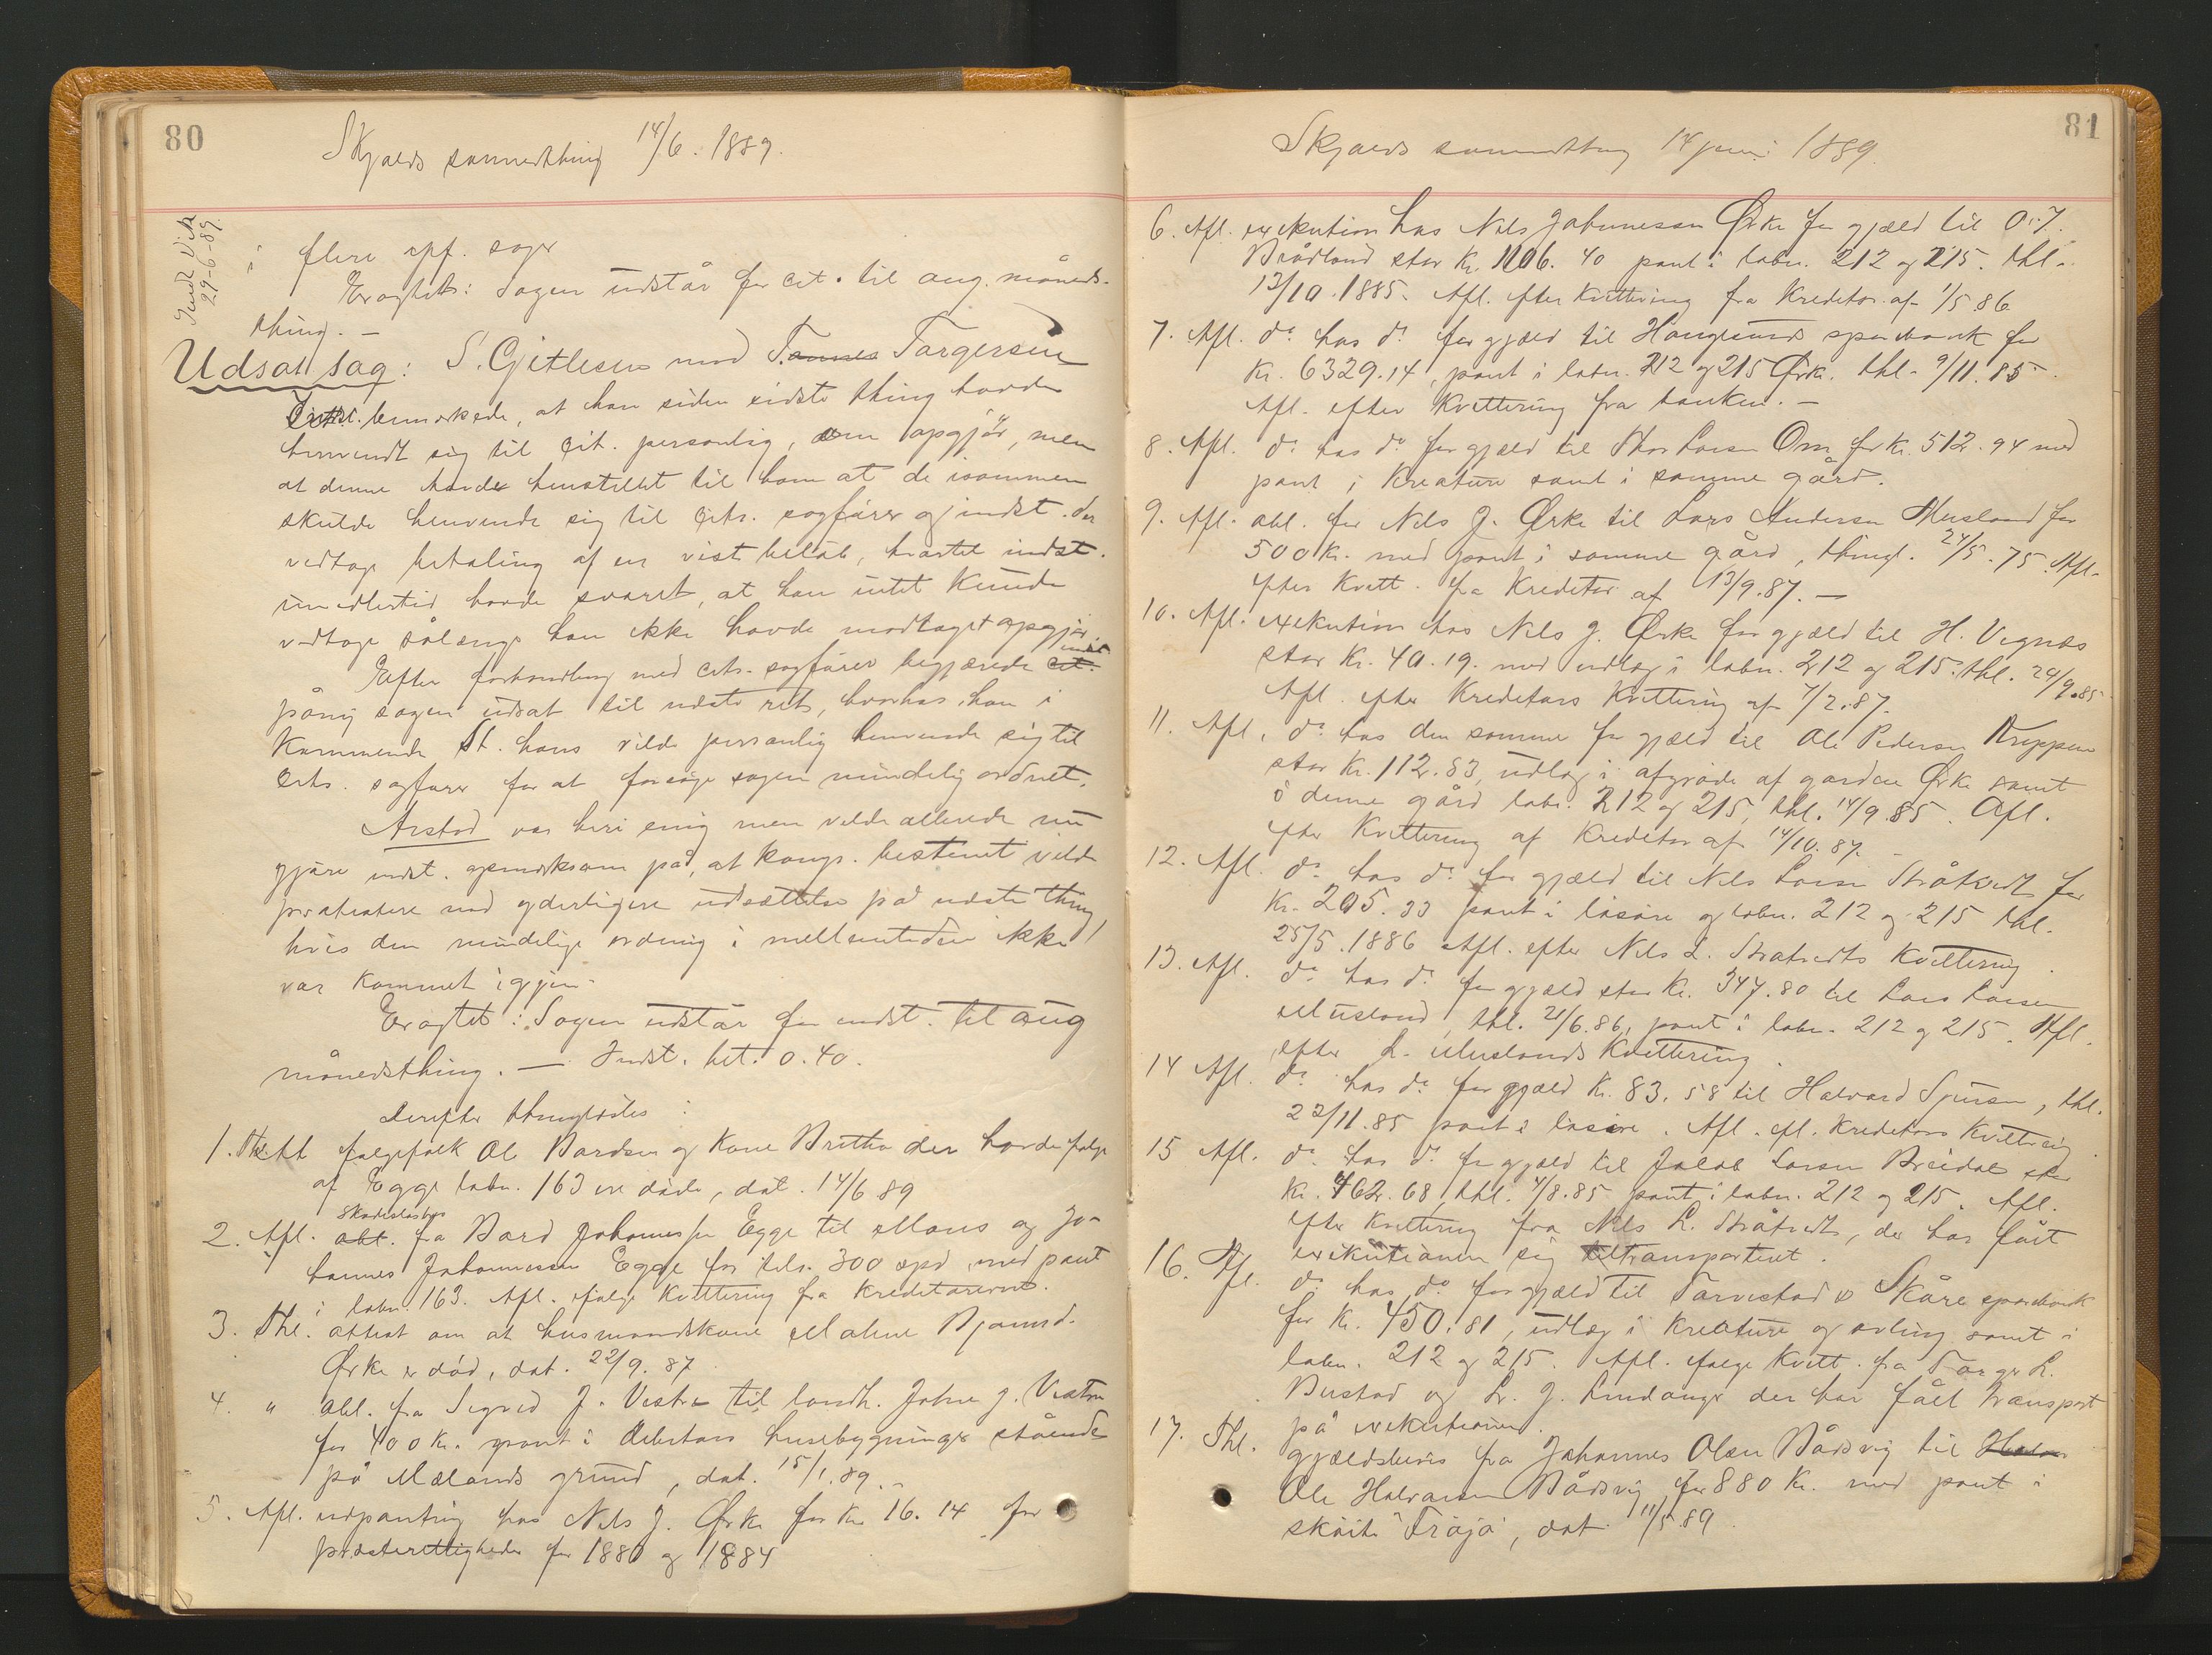 80
Skjolds sommerthing 14/6. 1889.
Indt Vik
29-6-89
i flere opf. sager
Eragtet: Sagen udstår for cit. til aug. måneds-
thing. —
Udsat sag: S. Gitlesen mod Tonnes Torgersen
Indst. bemærkede, at han siden sidste thing havde
henvendt sig til Cit. personlig, om opgjör, men
at denne havde henstillet til ham at de isammen
skulde henvende sig til Cits. sagförer og indst. der
vedtage betaling af en vist belöb, hvortil indst.
imidlertid havde svaret, at han intet kunde
vedtage sålænge han ikke havde modtaget opgjör.
Efter forhandling med cits. sagförer begjærede cit. indst
påny sagen udsat til næste ret, hvorhos han i
kommende St. hans vilde personlig henvende sig til
Cits. sagförer for at forsöge sagen mindelig ordnet.
Arstad var heri enig men vilde allerede nu
gjöre indst. opmærksom på, at hangs. bestemt vilde
protestere mod yderligere udsættelse på næste thing
hvis den mindelige ordning i mellemtiden ikke
var kommet igjen.
Eragtet: Sagen udstår for indst. til aug
månedsthing. — Indst. bet. 0.40.
Derefter thinglæstes:
1. Thl. Att folgefolk Ole Bardsen og Kone Britha der havde folge
af Egge labn. 163 ere döde, dat. 14/6 89
2. Afl. obl. skadeslösbr. fra Bard Johannessen Egge til Mons og Jo-
hannes Johannessen Egge for tils. 300 spd med pant
i labn. 163. Afl. ifölge kvittering fra kreditorerne.
3. Thl. attest om at husmandskone Malene Bjarnsd.
Örke er död, dat. 22/9. 87
4. " obl. fra Sigved J. Vestre til landh. John J. Vestre
for 400 Kr. pant i debitors husebygninger stående
på Mælands grund, dat. 15/1. 89.
5. Afl. udpantning hos Nels J. Örke for Kr 16. 14 for
præsterettigheder for 1880 og 1884
81
Skjolds sommerthing 14 juni 1889.
6. Afl. exekution hos Nils Johannessen Örke for gjæld til O. T.
Brådland stor Kr. 1106. 40 pant i labn. 212 og 215. thl.
13/10. 1885. Afl. efter kvittering fra Kreditor af 1/5 86
7. Afl. do hos do for gjæld til Haugesunds sparebank for
Kr. 6329.14, pant i labn. 212 og 215 Örke. thl. 9/11. 85.
Afl. efter kvittering fra banken. —
8. Afl. do hos do for gjæld til Thor Larsen Om for kr. 512. 94 med
pant i kreature samt i samme gård.
9. Afl. obl. fra Nels J. Örke til Lars Andersen Musland for
500 kr. med pant i samme gård, thingl. 24/5. 75. Afl.
efter kvitt. fra Kreditor af 13/9. 87. —
10. Afl. exekution hos Nels J. Örke for gjæld til H. Vegnæs
stor kr. 40. 19. med udlæg i labn. 212 og 215. thl. 24/9. 85
Afl. efter kreditors kvittering af 7/2. 87.
11. Afl. do hos den samme for gjæld til Ole Pedersen Knappen
stor kr. 112. 83, udlæg i afgröde af gården Örke samt
i denne gård labn. 212 og 215, thl. 14/9. 85. Afl.
efter kvittering af kreditor af 14/10. 87.
12. Afl. do hos do for gjæld til Nels Larsen Stråtveit for
Kr. 205. 33 pant i lösöre og labn. 212 og 215 thl.
25/5. 1886 Afl. efter Nels L. Stratveits kvittering.
13. Afl. do hos do for gjæld stor kr. 347. 80 til Lars Larsen
Musland, thl. 21/6. 86, pant i labn. 212 og 215. Afl.
efter L. Muslands kvittering.
14 Afl. do hos do for gjæld kr. 83. 58 til Halvard Sjursen, thl.
23/11. 85 pant i lösöre. Afl. eft. kreditors kvittering.
15 Afl. do hos do for gjæld til Jakob Larsen Breidal stor
kr. 462. 68, thl. 4/8. 85 pant i labn. 212 og 215. Afl.
efter kvittering fra Nels L. Stråtveit, der har fåt
exekutionen sig tiltransporteret.
16. Afl. do hos do for gjæld til Torvestad og Skåre sparebank
for kr. 450. 81, udlæg i kreature og avling samt i
labn. 212 og 215. Afl. ifölge kvitt. fra Torger L.
Bustad og Lr. J. Lindanger der har fået transport
på exekutionen.
17. Thl. gjældsbrev fra Johannes Olsen Bådsvig til
Ole Halvarsen Bådsvig for 880 kr. med pant i
sköite "Fröja", dat. 11/5 89.